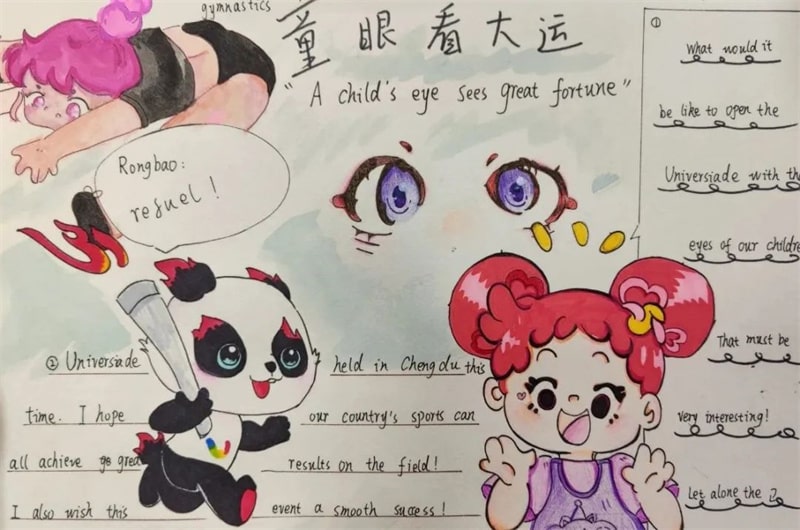 gymnastics
童眼看大运
"A child's eye sees great fortune"
Rongbao:
refuel!
①
What would it
be like to open the
Universiade with the
eyes of our childre
That must be
very interesting!
Let alone the
② Universiade held in Chengdu this
time. I hope our country's sports can
all achieve great
results on the field!
I also wish this event a smooth success!